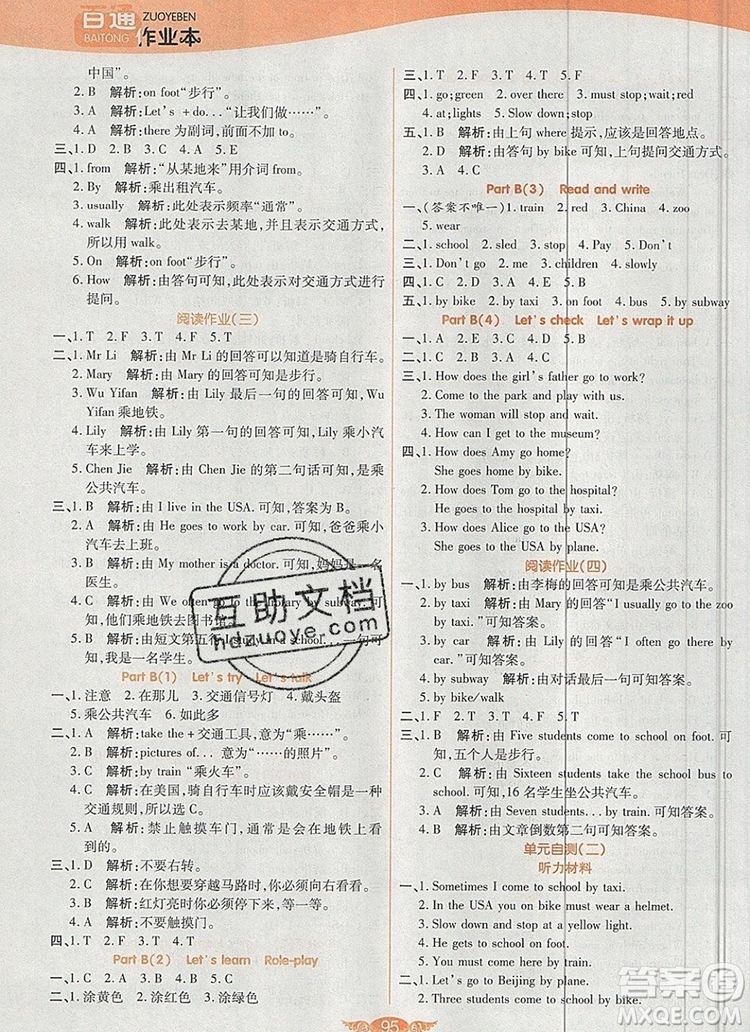 百通
BAITONG
ZUOYEBEN
作业本
中国”。
2. B 解析:on foot“步行”。
3. A 解析:Let's +do...“让我们做……”。
4. A 解析:there 为副词,前面不加介词。
三、1. D 2. B 3. C 4. A 5. E
四、1. from 解析:“从某地来”用介词 from。
2. By 解析:乘出租汽车。
3. usually 解析:此处表示频率“通常”。
4. walk 解析:此处表示去某地,并且表示交通方式,
所以用 walk。
5. On 解析:on foot“步行”。
6. How 解析:由答句可知,此处表示对交通方式进行
提问。
阅读作业(三)
一、1. T 2. F 3. F 4. T
二、1. Mr Li 解析:由 Mr Li 的回答可以知道是骑自行车。
2. Mary 解析:由 Mary 的回答可知是步行。
3. Wu Yifan 解析:由 Lily 最后一句的回答可知,Wu
Yifan 乘地铁。
4. Lily 解析:由 Lily 第一句的回答可知,Lily 乘小汽
车来上学。
5. Chen Jie 解析:由 Chen Jie 的第二句话可知,是乘
公共汽车。
三、1. B 解析:由 I live in the USA. 可知,答案为 B。
2. A 解析:由 He goes to work by car. 可知,爸爸乘小
汽车去上班。
3. B 解析:由 My mother is a doctor. 可知,妈妈是一名
医生。
4. C 解析:由 We often go to the library by subway. 可
知,他们乘地铁去图书馆。
5. B 解析:由短文第五句 study in a school... 一句可
知,我是一名学生。
Part B(1) Let's try Let's talk
一、1. 注意 2. 在那儿 3. 交通信号灯 4. 戴头盔
5. 乘公共汽车 6. 如此多
二、1. A 解析:take the+交通工具,意为“乘……”。
2. B 解析:pictures of... 意为“……的照片”。
3. C 解析:by train“乘火车”。
4. B 解析:在美国,骑自行车时应该戴安全帽是一种
交通规则,所以选 C。
5. A 解析:禁止触摸车门,通常会在地铁上看
到。
三、1. D 解析:不要右转。
2. B 解析:在你想要穿越马路时,你必须向右看。
3. C 解析:红灯亮时,你必须停下来。
4. A 解析:不要触摸车门。
四、1. T 2. F 3. T 4. T
Part B(2) Let's learn Role-play
一、1. C 2. A 3. A 4. C 5. C
二、1. 涂黄色 2. 涂红色 3. 涂绿色
三、1. T 2. F 3. F 4. T 5. F
四、1. go;green 2. over there 3. must stop;wait;red
4. at;lights 5. Slow down;stop
五、1. B 解析:由上句 where 提示,应该是回答地点。
2. A 解析:由答句 by bike 可知,上句提问交通方式。
Part B(3) Read and write
一、(答案不唯一)1. train 2. red 3. China 4. zoo
5. wear
二、1. school 2. sled 3. stop 4. Pay 5. Don't
三、1. Don't go 2. on foot 3. by ferry 4. slow down
四、1. C 2. D 3. A 4. B
五、1. by bike 2. by taxi 3. on foot 4. bus 5. by subway
Part B(4) Let's check Let's wrap it up
三、1. How does the girl's father go to work?
2. Come to the park and play with us.
3. The woman will stop and wait.
4. How can I get to the museum?
四、1. How does Amy go home?
She goes home by bike.
2. How does Tom go to the hospital?
He goes to the hospital by taxi.
3. How does Alice go to the USA?
She goes to the USA by plane.
阅读作业(四)
一、1. by bus 解析:由李梅的回答可知是乘公共汽车。
2. by taxi 解析:由 Mary 的回答“I usually go to the zoo
by taxi. ”可知。
3. by car 解析:由 Lily 的回答“I often go there by
car. ”可知。
4. by subway 解析:由 Peter 的最后一句可知。
5. by bike/walking
二、1. F 2. T 3. T 4. F 5. F
三、1. B 解析:由 Five students come to school on foot. 可
知,五个人是步行。
2. C 解析:由 Sixteen students take the school bus to
school. 可知,16 名学生坐公共汽车。
3. A 解析:由 Seven students ... by train. 可知答案。
4. B 解析:由文章倒数第二句可知答案。
单元自测(二)
听力材料
一、1. Sometimes I come to school by taxi.
2. In the USA you on bike must wear a helmet.
3. Slow down and stop at a yellow light.
4. He gets to school on foot.
5. You must come here by train.
二、1. Let's go to Beijing by plane.
2. Don't go at the red light.
3. Amy goes to school by bus.
互助文档
hdzuoye.com
答案圈
MXQE.COM
95